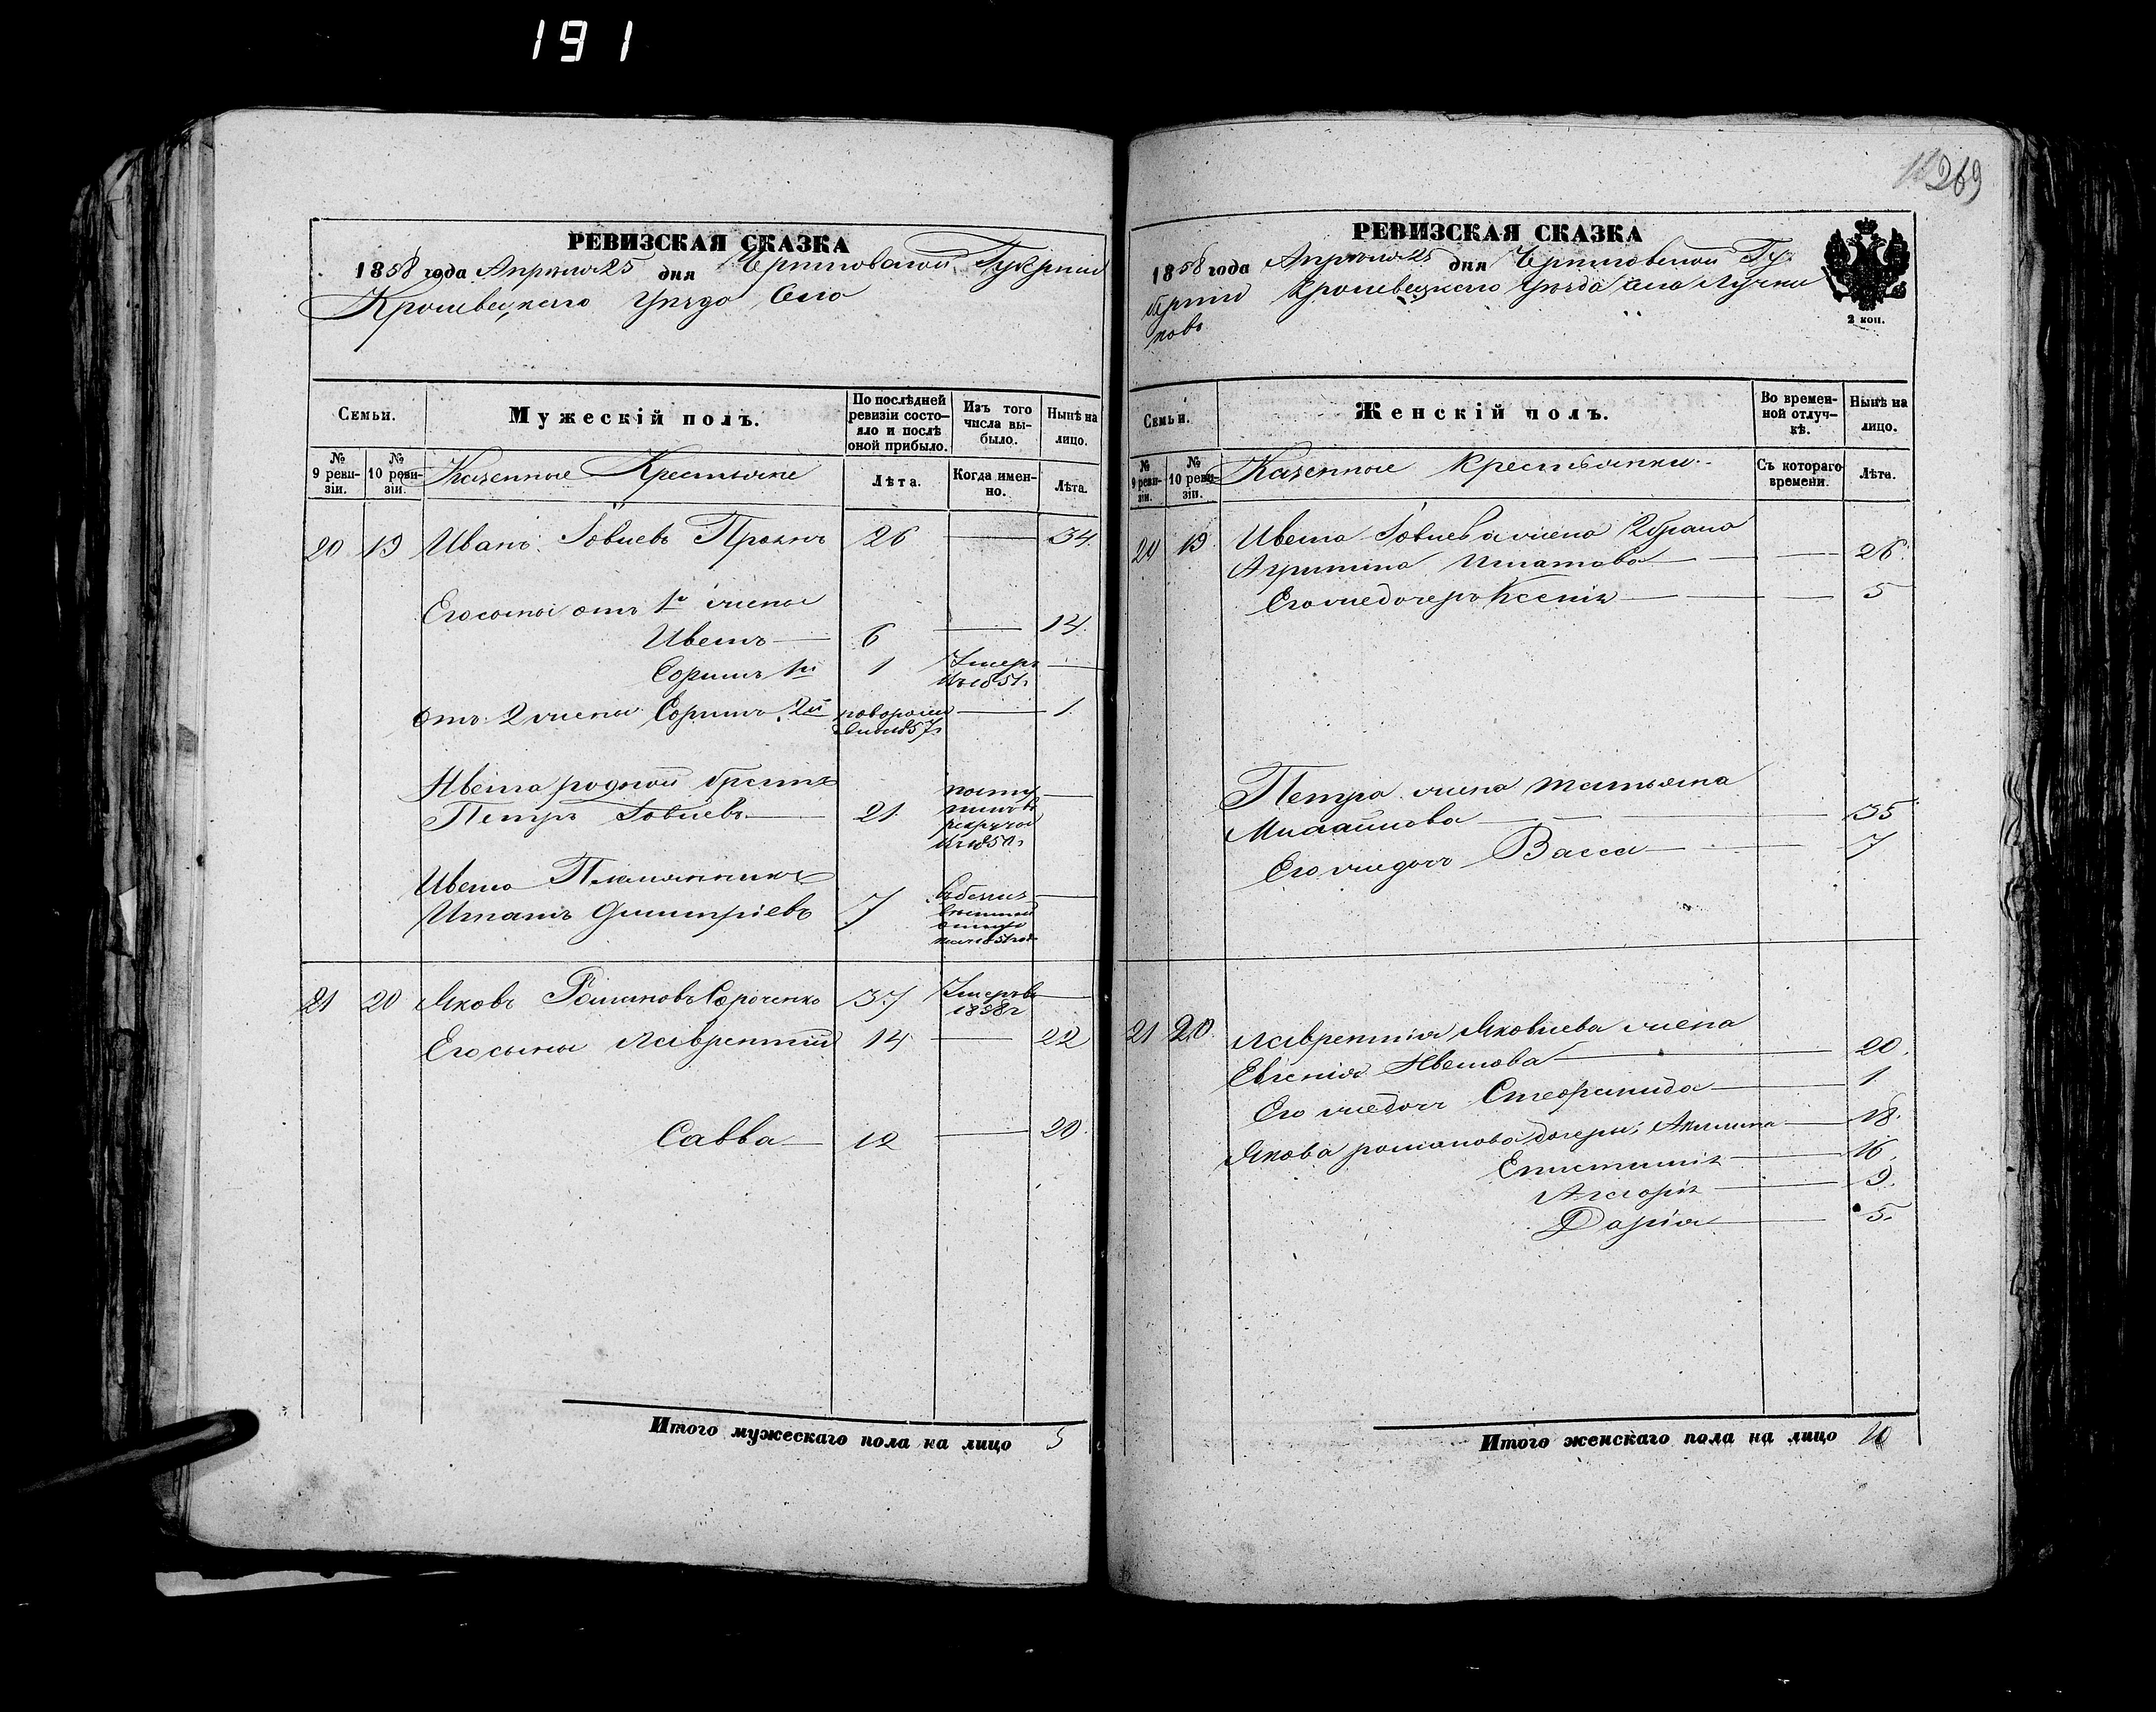 191
269
РЕВИЗСКАЯ СКАЗКА
1858 года Апрѣля 25 дня Черниговской Губерніи
Кролевецкаго Уѣзда Села
Семьи.
Мужескій полъ.
По послѣдней ревизіи состояло и послѣ оной прибыло.
Изъ того числа выбыло.
Нынѣ на лицо.
№ 9 ревизіи.
№ 10 ревизіи.
Казенные Крестьяне
Лѣта.
Когда именно.
Лѣта.
20 19 Иванъ Іовлевъ 26 — 34.
Его сыны отъ 1й жены
Иванъ — 6 — 14.
1й 1 Умеръ —
въ 1851г
отъ 2 жены 2й — 1
1857г
Ивана родной братъ
Петръ Іовлевъ — 21. —
Ивана Племянникъ
Игнатъ Дмитріевъ 7 —
21 20 Яковъ Романовъ Сороченко 37 Умеръ въ —
1858г
Его сыны Лаврентій 14 — 22
Савва — 12 — 20.
Итого мужескаго пола на лицо 5
РЕВИЗСКАЯ СКАЗКА
1858 года Апрѣля 25 дня Черниговской Гу-
берніи Кролевецкаго Уѣзда села Лучни
ковъ
2 коп.
Семьи.
Женскій полъ.
Во временной отлучкѣ.
Нынѣ на лицо.
№ 9 ревизіи.
№ 10 ревизіи.
Казенные Крестьянки
Съ котораго времени.
Лѣта.
20 19. Ивана Іовлева жена 2 брака
Агрипина Игнатова — — 26.
Его же дочерь Ксенія — — 5
Петра жена Татьяна
Михайлова — — 35
Его же дочь Васса — — 7
21 20. Лаврентія Яковлева жена
Евгенія Иванова — 20.
Его же дочь Стефанида — 1
Якова Романова дочери, Акилина — 18.
Епистимія — 16.
— 9.
Дарія — 5.
Итого женскаго пола на лицо 10